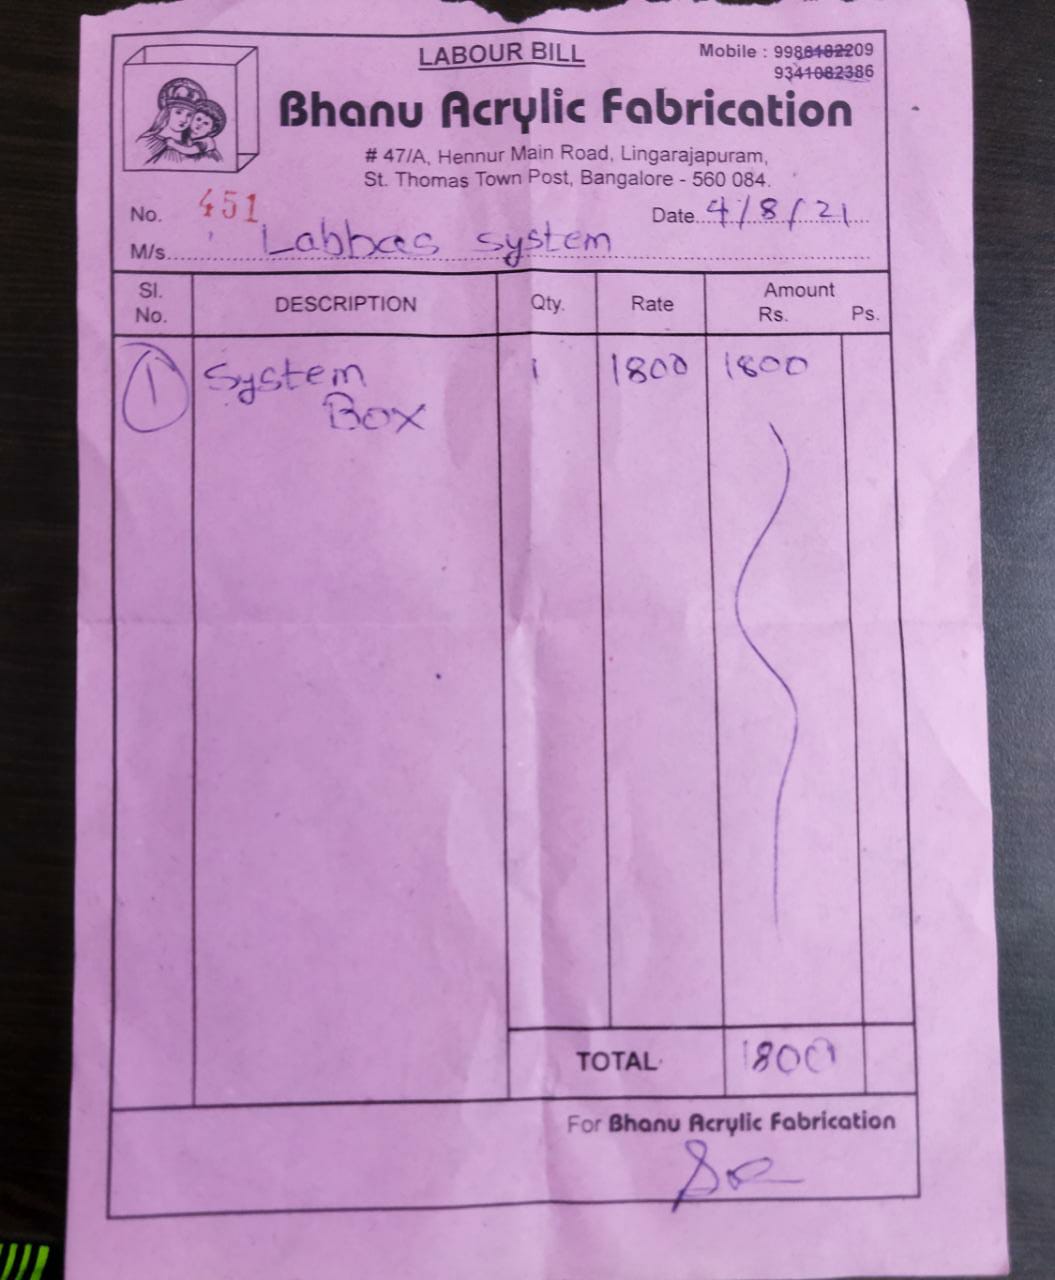 LABOUR BILL
Mobile : 9986182209
9341082386
Bhanu Acrylic Fabrication
# 47/A, Hennur Main Road, Lingarajapuram,
St. Thomas Town Post, Bangalore - 560 084.
No. 451
Date 4/8/21
M/s. Labbas system
Sl. No. DESCRIPTION Qty. Rate Amount Rs. Ps.
1 System Box 1 1800 1800
TOTAL 1800
For Bhanu Acrylic Fabrication